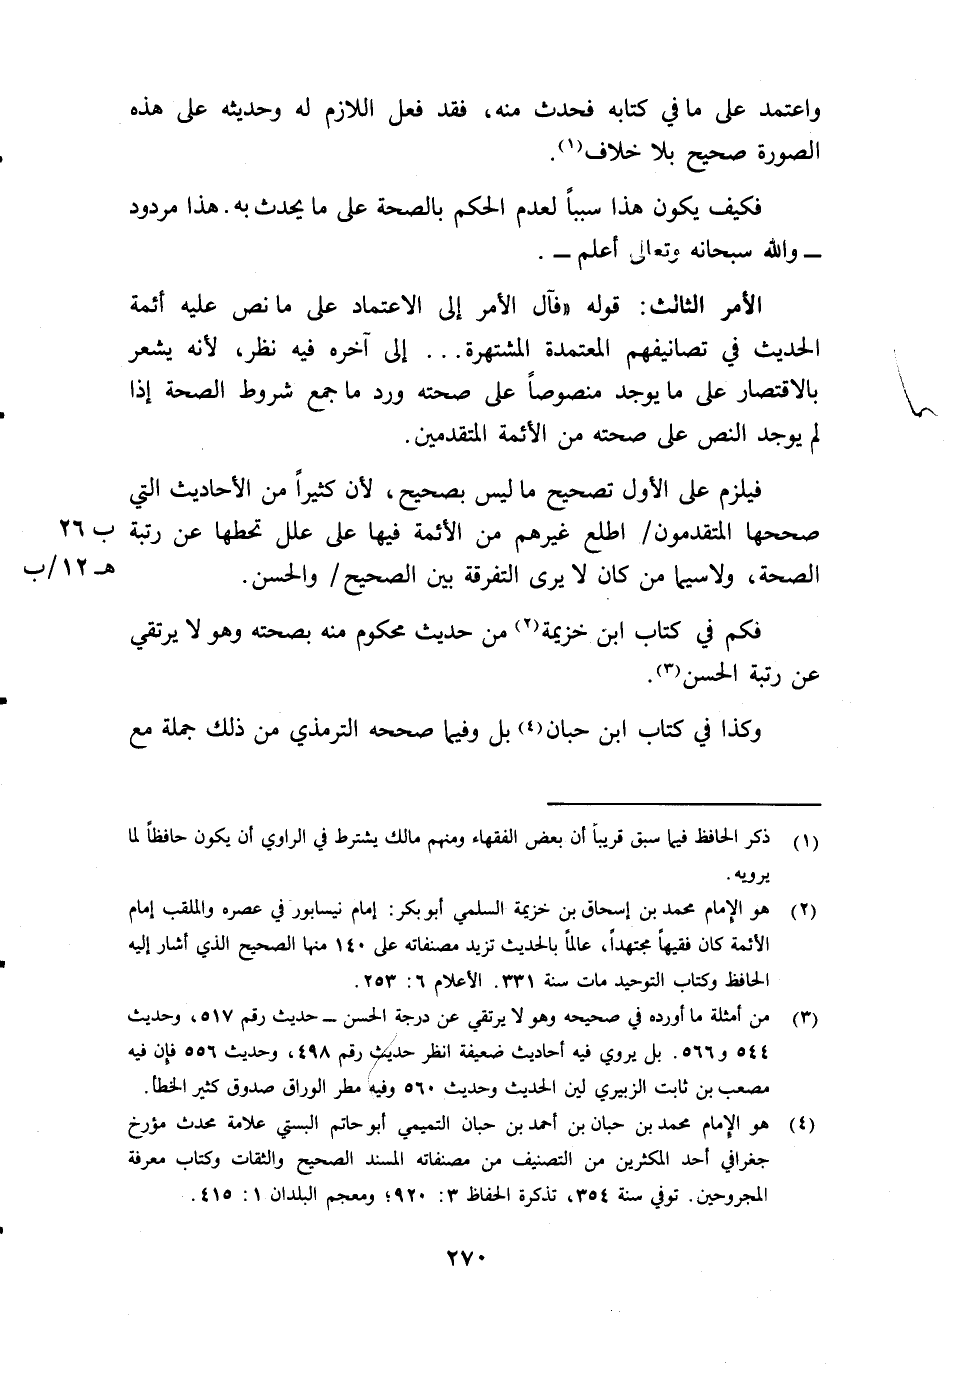 واعتمد على ما في كتابه فحدث منه، فقد فعل اللازم له وحديثه على هذه
الصورة صحيح بلا خلاف(١).
فكيف يكون هذا سبباً لعدم الحكم بالصحة على ما يحدث به. هذا مردود
ــ والله سبحانه وتعالى أعلم ــ .
الأمر الثالث: قوله «فآل الأمر إلى الاعتماد على ما نص عليه أئمة
الحديث في تصانيفهم المعتمدة المشتهرة... إلى آخره فيه نظر، لأنه يشعر
بالاقتصار على ما يوجد منصوصاً على صحته ورد ما جمع شروط الصحة إذا
لم يوجد النص على صحته من الأئمة المتقدمين.
فيلزم على الأول تصحيح ما ليس بصحيح، لأن كثيراً من الأحاديث التي
صححها المتقدمون/ اطلع غيرهم من الأئمة فيها على علل تحطها عن رتبة ب ٢٦
الصحة، ولاسيما من كان لا يرى التفرقة بين الصحيح/ والحسن. هـ ١٢/ب
فكم في كتاب ابن خزيمة(٢) من حديث محكوم منه بصحته وهو لا يرتقي
عن رتبة الحسن(٣).
وكذا في كتاب ابن حبان(٤) بل وفيما صححه الترمذي من ذلك جملة مع
(١) ذكر الحافظ فيما سبق قريباً أن بعض الفقهاء ومنهم مالك يشترط في الراوي أن يكون حافظاً لما
يرويه.
(٢) هو الإمام محمد بن إسحاق بن خزيمة السلمي أبو بكر: إمام نيسابور في عصره والملقب إمام
الأئمة كان فقيهاً مجتهداً، عالماً بالحديث تزيد مصنفاته على ١٤٠ منها الصحيح الذي أشار إليه
الحافظ وكتاب التوحيد مات سنة ٣٣١. الأعلام ٦: ٢٥٣.
(٣) من أمثلة ما أورده في صحيحه وهو لا يرتقي عن درجة الحسن ــ حديث رقم ٥١٧، وحديث
٥٤٤ و٥٦٦. بل يروي فيه أحاديث ضعيفة انظر حديث رقم ٤٩٨، وحديث ٥٥٦ فإن فيه
مصعب بن ثابت الزبيري لين الحديث وحديث ٥٦٠ وفيه مطر الوراق صدوق كثير الخطأ.
(٤) هو الإمام محمد بن حبان بن أحمد بن حبان التميمي أبو حاتم البستي علامة محدث مؤرخ
جغرافي أحد المكثرين من التصنيف من مصنفاته المسند الصحيح والثقات وكتاب معرفة
المجروحين. توفي سنة ٣٥٤، تذكرة الحفاظ ٣: ٩٢٠؛ ومعجم البلدان ١: ٤١٥.
٢٧٠